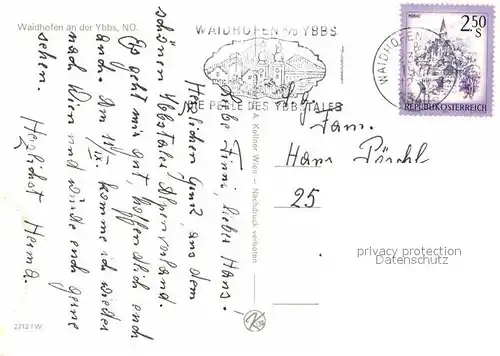 Waidhofen an der Ybbs, NÖ.
WAIDHOFEN a/d YBBS
DIE PERLE DES YBBSTALES
WAIDHOFEN
MURAU
2.50
S
REPUBLIK ÖSTERREICH
Liebe Finni, lieber Hans.
Herzlichen Gruß aus dem
schönen Ybbstaler Alpenvorland.
Es geht mir gut, hoffentlich euch
auch. Am komme ich wieder
nach Wien und würde euch gerne
sehen. Herzlichst Herma.
A. Kellner Wien — Nachdruck verboten
Fam.
Hans
25
privacy protection
Datenschutz
2712 FW
K